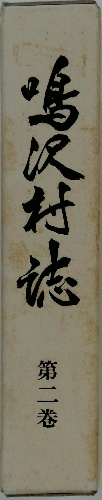 鳴沢村誌
第二巻